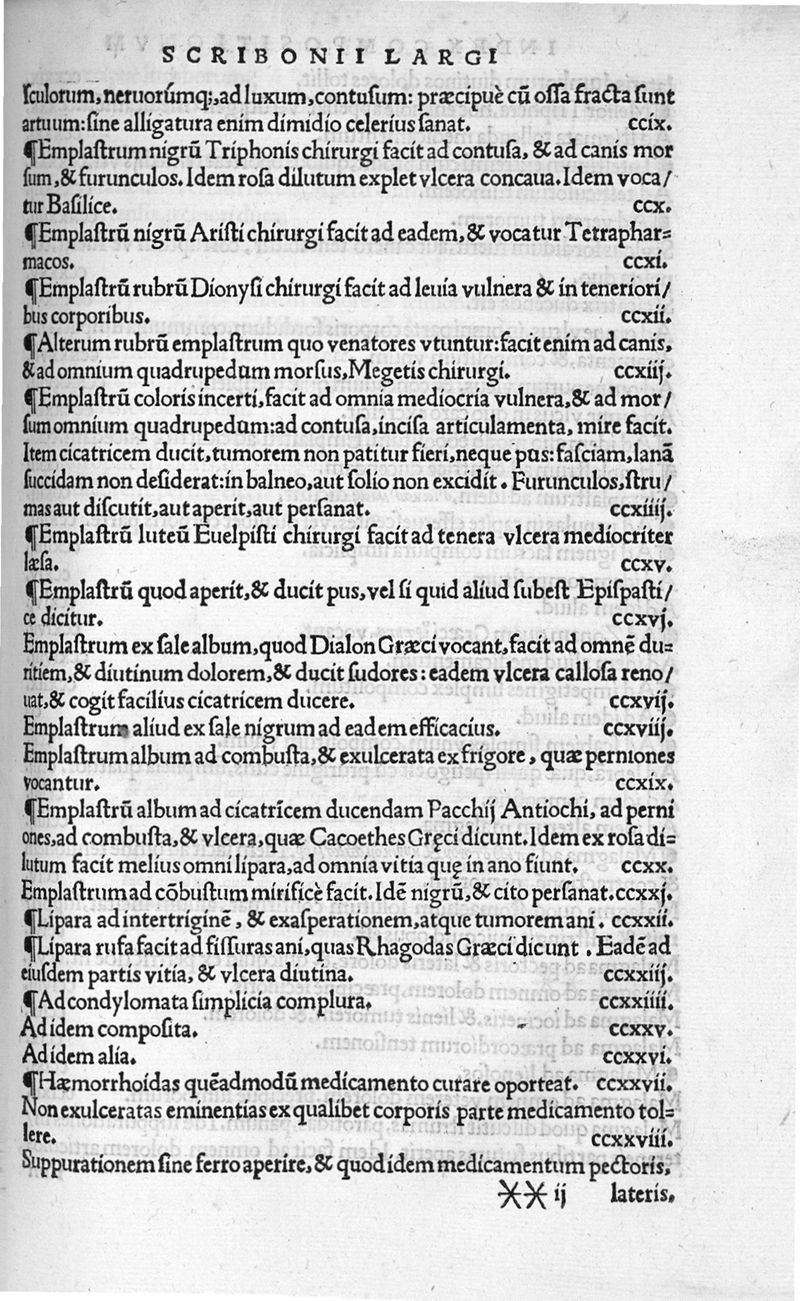 SCRIBONII LARGI
sculorum, neruorúmq;, ad luxum, contusum: præcipuè cũ ossa fracta sunt
artuum: sine alligatura enim dimidio celerius sanat. ccix.
¶Emplastrum nigrũ Triphonis chirurgi facit ad contusa, & ad canis mor
sum, & furunculos. Idem rosa dilutum explet vlcera concaua. Idem voca/
tur Basilice. ccx.
¶Emplastrũ nigrũ Aristi chirurgi facit ad eadem, & vocatur Tetraphar=
macos. ccxi.
¶Emplastrũ rubrũ Dionysi chirurgi facit ad leuia vulnera & in teneriori/
bus corporibus. ccxii.
¶Alterum rubrũ emplastrum quo venatores vtuntur: facit enim ad canis,
& ad omnium quadrupedum morsus, Megetis chirurgi. ccxiij.
¶Emplastrũ coloris incerti, facit ad omnia mediocria vulnera, & ad mor/
sum omnium quadrupedum: ad contusa, incisa articulamenta, mire facit.
Item cicatricem ducit, tumorem non patitur fieri, neque pus: fasciam, lanã
succidam non desiderat: in balneo, aut solio non excidit. Furunculos, stru/
mas aut discutit, aut aperit, aut persanat. ccxiiij.
¶Emplastrũ luteũ Euelpisti chirurgi facit ad tenera vlcera mediocriter
læsa. ccxv.
¶Emplastrũ quod aperit, & ducit pus, vel si quid aliud subest Epispasti/
ce dicitur. ccxvj.
Emplastrum ex sale album, quod Dialon Græci vocant, facit ad omnẽ du=
ritiem, & diutinum dolorem, & ducit sudores: eadem vlcera callosa reno/
uat, & cogit facilius cicatricem ducere. ccxvij.
Emplastrum aliud ex sale nigrum ad eadem efficacius. ccxviij.
Emplastrum album ad combusta, & exulcerata ex frigore, quæ perniones
vocantur. ccxix.
¶Emplastrũ album ad cicatricem ducendam Pacchij Antiochi, ad perni
ones, ad combusta, & vlcera, quæ Cacoethes Gręci dicunt. Idem ex rosa di=
lutum facit melius omni lipara, ad omnia vitia quę in ano fiunt. ccxx.
Emplastrum ad cõbustum mirificè facit. Idẽ nigrũ, & cito persanat. ccxxj.
¶Lipara ad intertriginẽ, & exasperationem, atque tumorem ani. ccxxii.
¶Lipara rufa facit ad fissuras ani, quas Rhagodas Græci dicunt. Eadẽ ad
eiusdem partis vitia, & vlcera diutina. ccxxiij.
¶Ad condylomata simplicia complura. ccxxiiii.
Ad idem composita. ccxxv.
Ad idem alia. ccxxvi.
¶Hæmorrhoidas quẽadmodũ medicamento curare oporteat. ccxxvii.
Non exulceratas eminentias ex qualibet corporis parte medicamento tol=
lere. ccxxviii.
Suppurationem sine ferro aperire, & quod idem medicamentum pectoris,
✶✶ ij lateris,